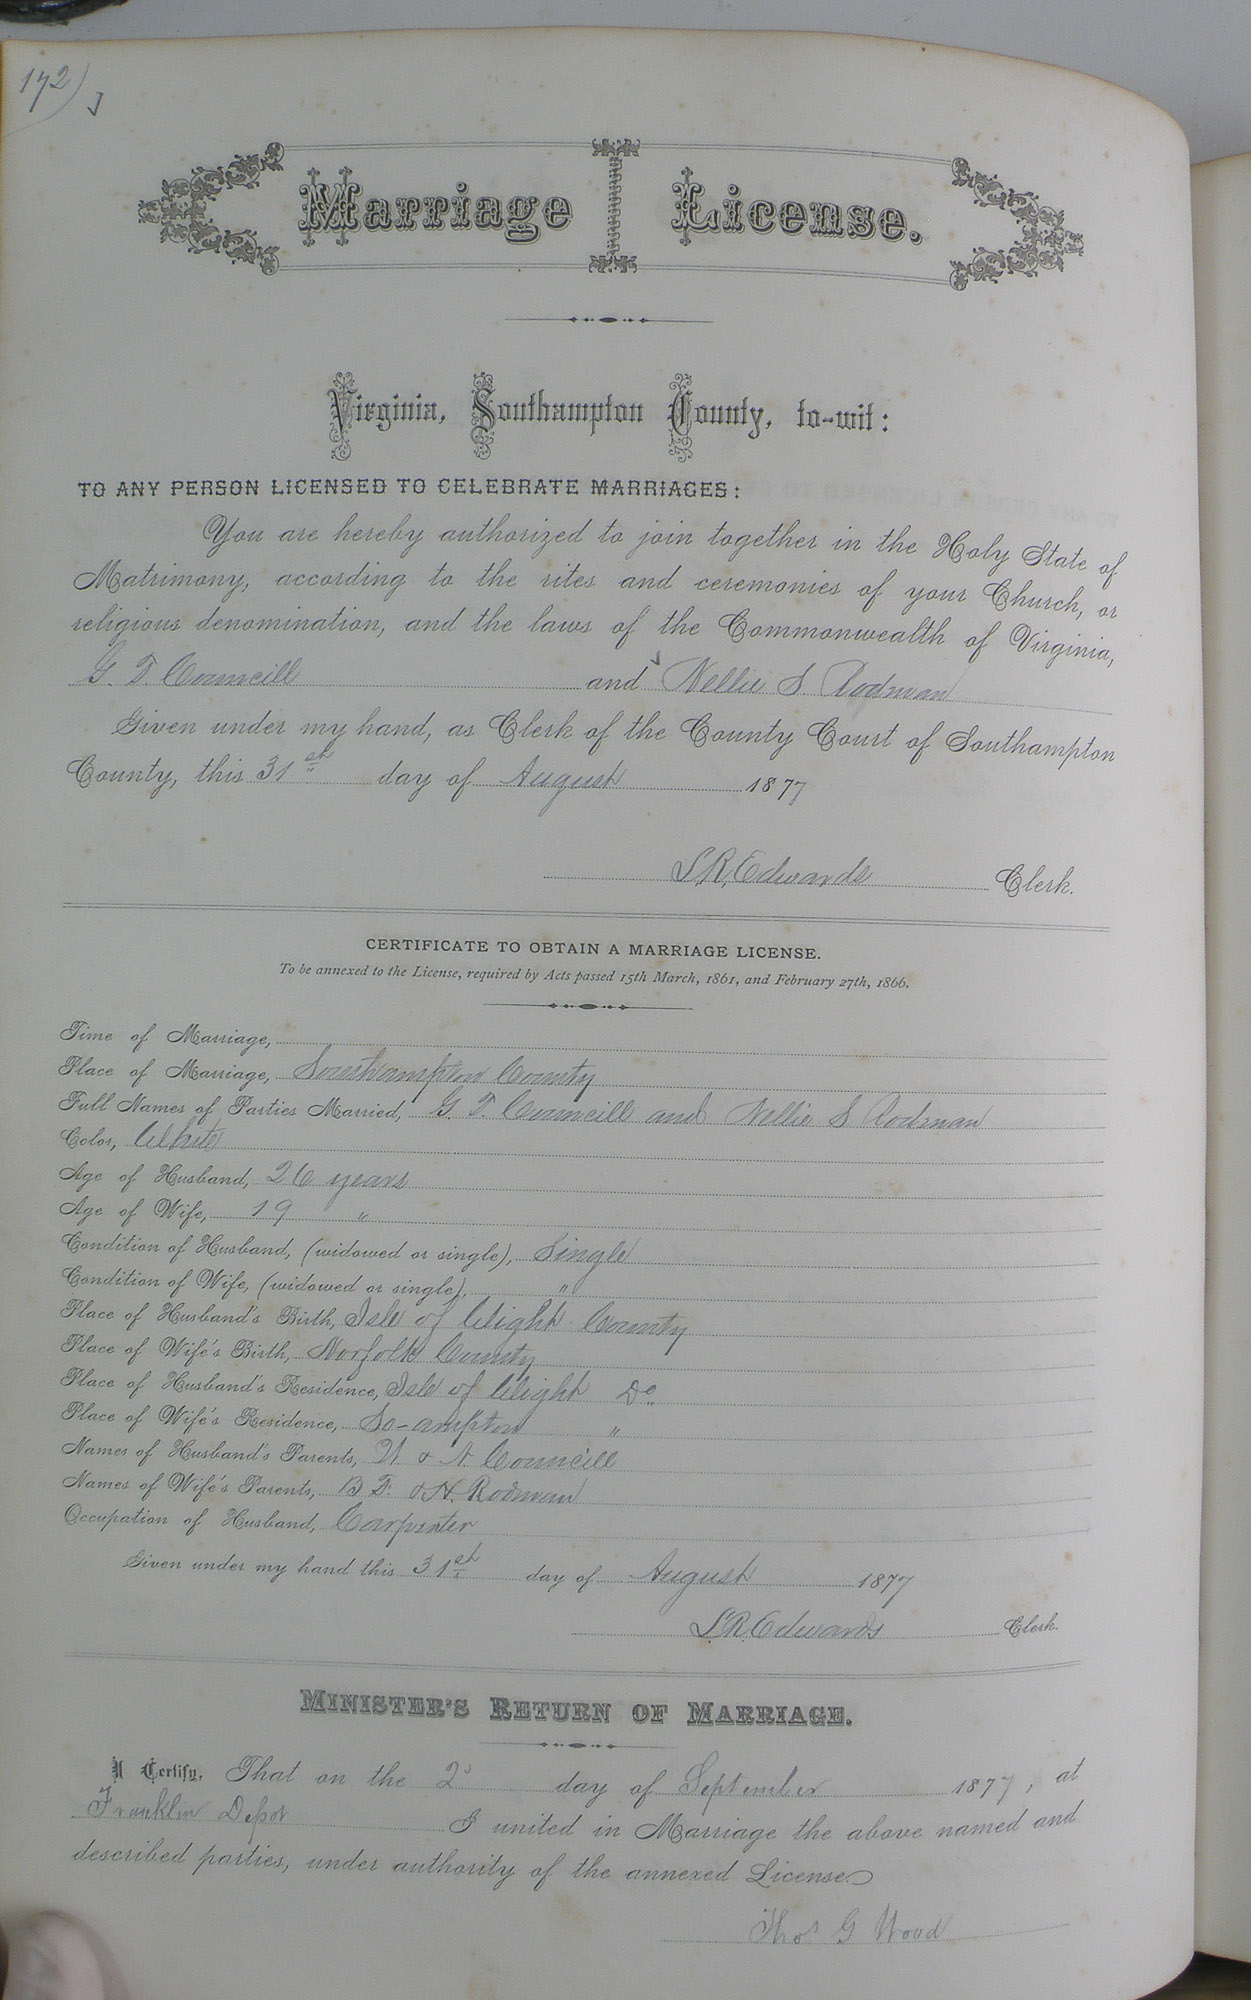 172)
Marriage License.
Virginia, Southampton County, to-wit:
TO ANY PERSON LICENSED TO CELEBRATE MARRIAGES:
You are hereby authorized to join together in the Holy State of
Matrimony, according to the rites and ceremonies of your Church, or
religious denomination, and the laws of the Commonwealth of Virginia,
G. T. Councill and Nellie S Rodman
Given under my hand, as Clerk of the County Court of Southampton
County, this 31st day of August 1877
L.R. Edwards Clerk.
CERTIFICATE TO OBTAIN A MARRIAGE LICENSE.
To be annexed to the License, required by Acts passed 15th March, 1861, and February 27th, 1866.
Time of Marriage,
Place of Marriage, Southampton County
Full Names of Parties Married, G. T. Councill and Nellie S Rodman
Color, White
Age of Husband, 26 years
Age of Wife, 19 "
Condition of Husband, (widowed or single), Single
Condition of Wife, (widowed or single), "
Place of Husband's Birth, Isle of Wight County
Place of Wife's Birth, Norfolk County
Place of Husband's Residence, Isle of Wight Do
Place of Wife's Residence, So-ampton "
Names of Husband's Parents, & Councill
Names of Wife's Parents, B F. & H. Rodman
Occupation of Husband, Carpenter
Given under my hand this 31st day of August 1877
L.R. Edwards Clerk.
MINISTER'S RETURN OF MARRIAGE.
I Certify, That on the 2d day of September 1877, at
Franklin Depot I united in Marriage the above named and
described parties, under authority of the annexed License.
Thos G Wood